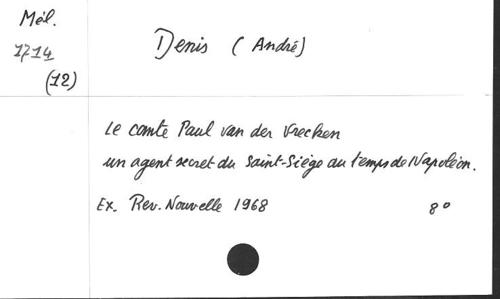 Mél.
1714
(12)
Denis (André)
Le comte Paul van der Vrecken
un agent secret du Saint-Siège au temps de Napoléon.
Ex. Rev. Nouvelle 1968 8°